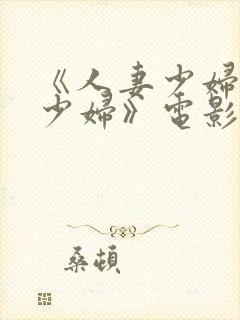 《人妻少妇
少婦》電影
桑頓